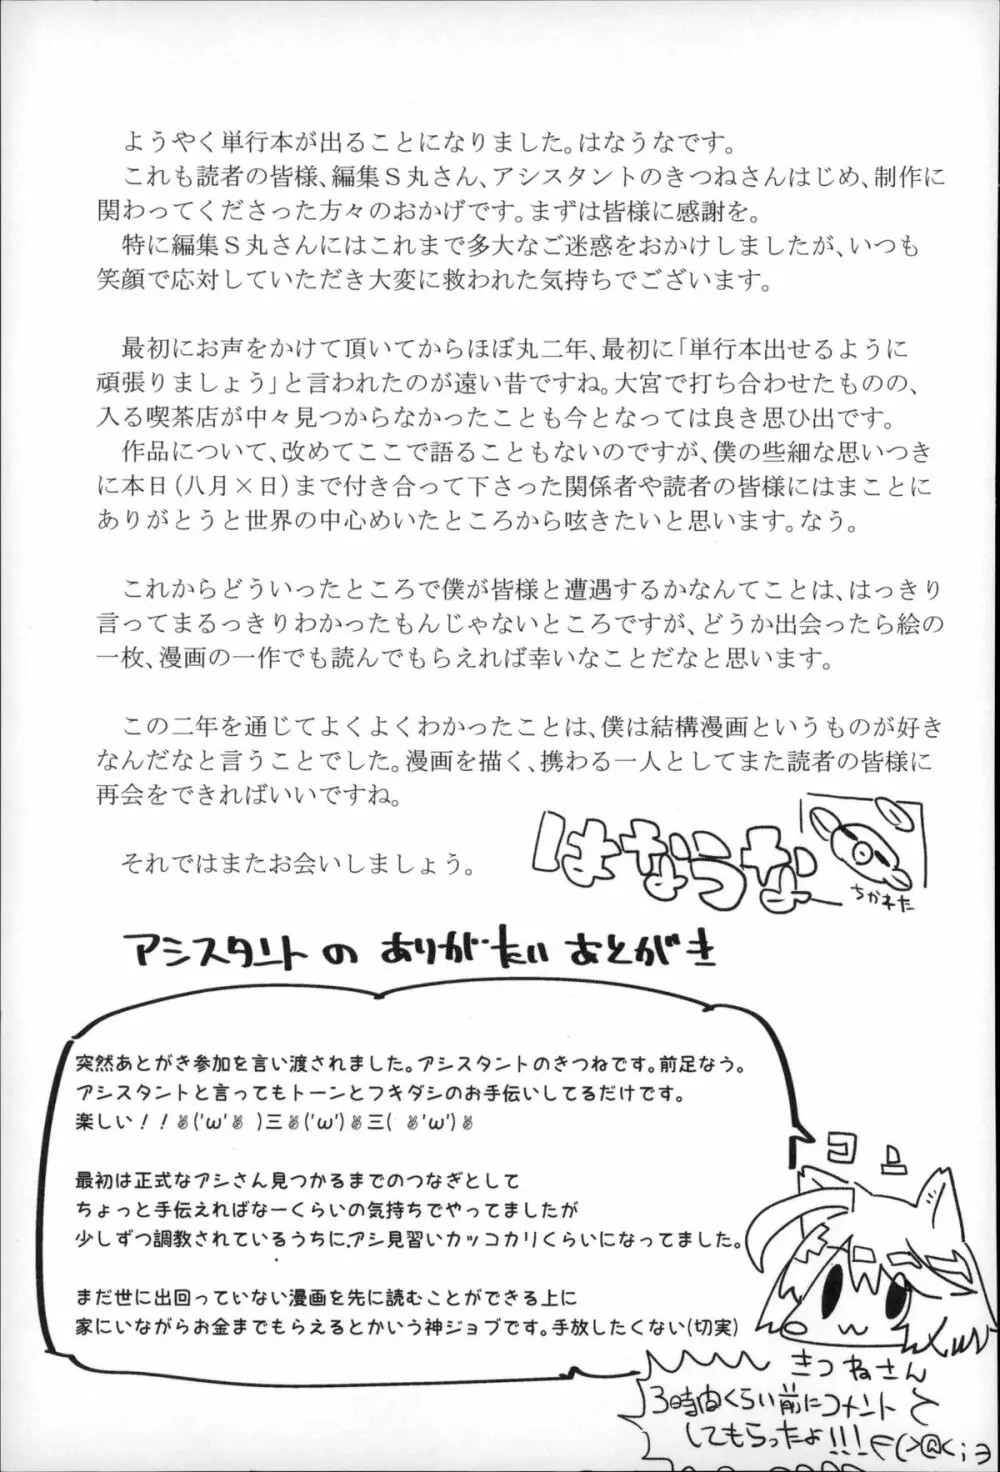 ようやく単行本が出ることになりました。はなうなです。
これも読者の皆様、編集Ｓ丸さん、アシスタントのきつねさんはじめ、制作に
関わってくださった方々のおかげです。まずは皆様に感謝を。
特に編集Ｓ丸さんにはこれまで多大なご迷惑をおかけしましたが、いつも
笑顔で応対していただき大変に救われた気持ちでございます。
最初にお声をかけて頂いてからほぼ丸二年、最初に「単行本出せるように
頑張りましょう」と言われたのが遠い昔ですね。大宮で打ち合わせたものの、
入る喫茶店が中々見つからなかったことも今となっては良き思ひ出です。
作品について、改めてここで語ることもないのですが、僕の些細な思いつき
に本日(八月×日)まで付き合って下さった関係者や読者の皆様にはまことに
ありがとうと世界の中心めいたところから呟きたいと思います。なう。
これからどういったところで僕が皆様と遭遇するかなんてことは、はっきり
言ってまるっきりわかったもんじゃないところですが、どうか出会ったら絵の
一枚、漫画の一作でも読んでもらえれば幸いなことだなと思います。
この二年を通じてよくよくわかったことは、僕は結構漫画というものが好き
なんだなと言うことでした。漫画を描く、携わる一人としてまた読者の皆様に
再会をできればいいですね。
それではまたお会いしましょう。
はなうな
ちかれた
アシスタントの ありがたい あとがき
突然あとがき参加を言い渡されました。アシスタントのきつねです。前足なう。
アシスタントと言ってもトーンとフキダシのお手伝いしてるだけです。
楽しい！！✌('ω'✌ )三✌('ω')✌三( ✌'ω')✌
最初は正式なアシさん見つかるまでのつなぎとして
ちょっと手伝えればなーくらいの気持ちでやってましたが
少しずつ調教されているうちに、アシ見習いカッコカリくらいになってました。
まだ世に出回っていない漫画を先に読むことができる上に
家にいながらお金までもらえるとかいう神ジョブです。手放したくない(切実)
コュ
きつねさん
3時間くらい前にコメント
してもらったよ!!!